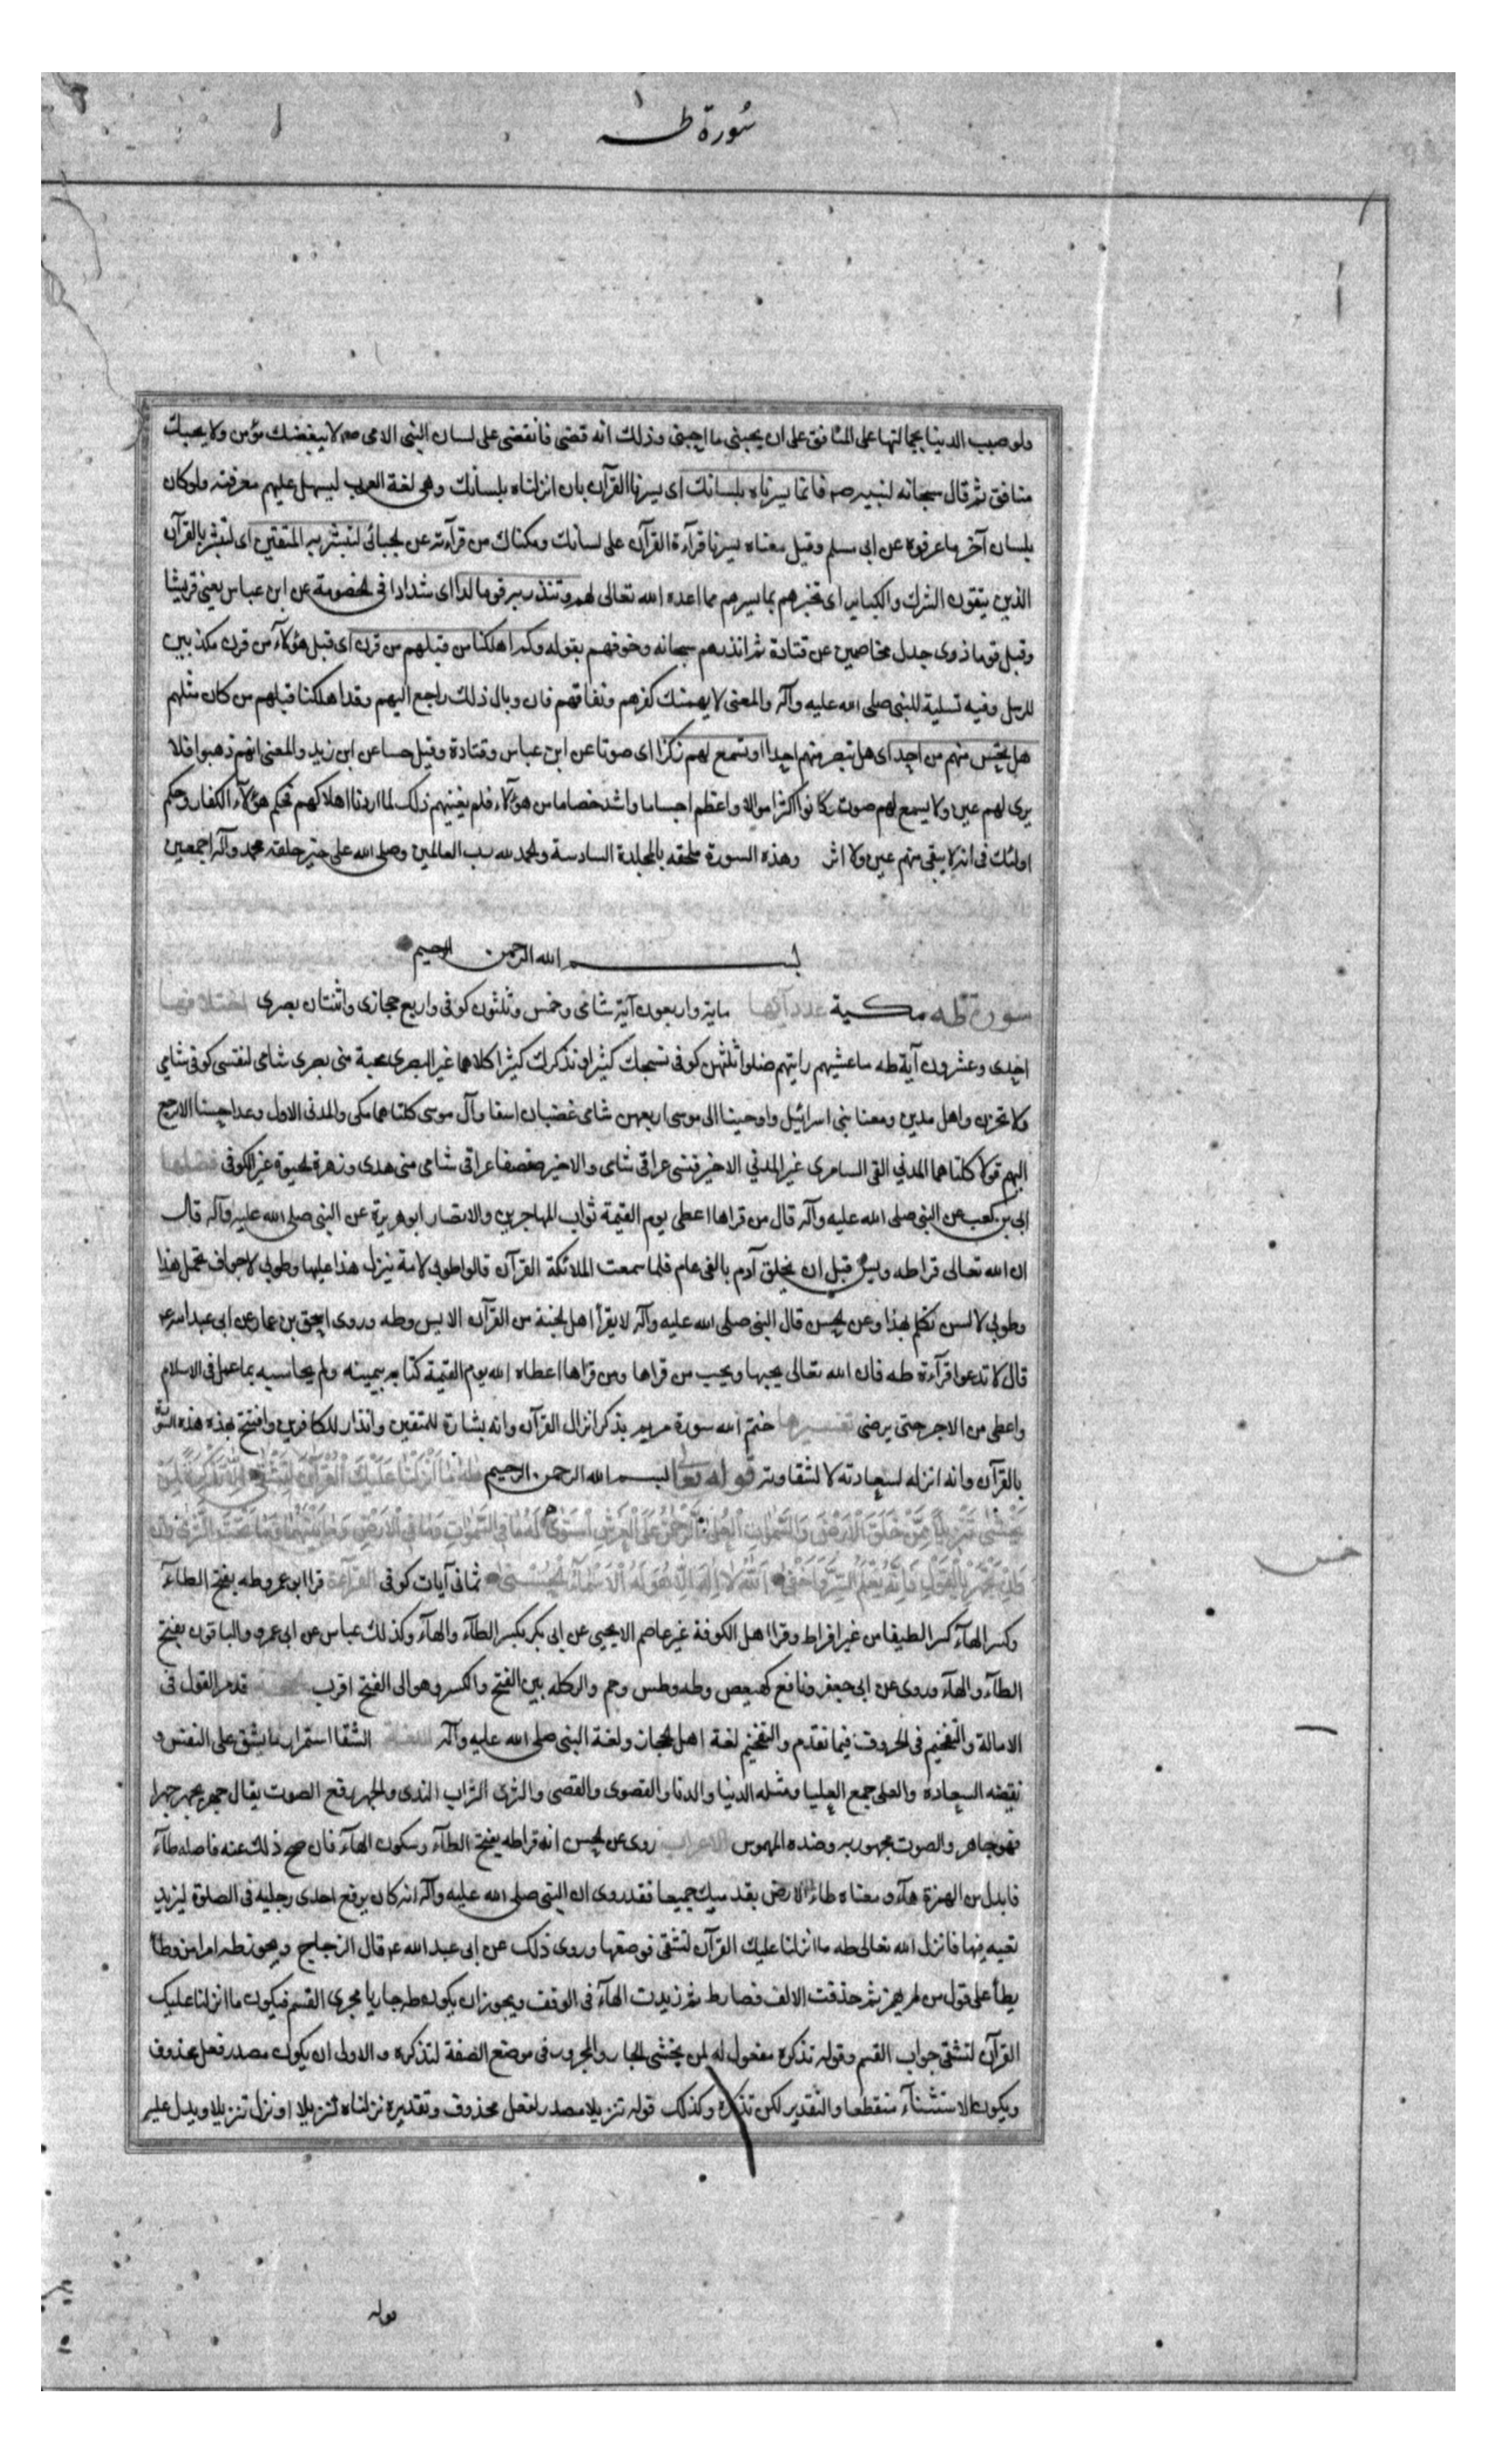 سورة طه
ولو صببت الدنيا بجمالتها على المنافق على ان يحبني ما احبني وذلك انه قضى فانقضى على لسان النبي الامي صم لا يبغضك مؤمن ولا يحبك
منافق ثم قال سبحانه لنبيه صم فانما يسرناه بلسانك اى يسرنا القرآن بان انزلناه بلسانك وهى لغة العرب ليسهل عليهم معرفته ولو كان
بلسان آخر ما عرفوه عن ابى مسلم وقيل معناه يسرنا قرآءة القرآن على لسانك ومكناك من قرآءته عن الجبائى لتبشر به المتقين اى لتبشر بالقرآن
الذين يتقون الشرك والكباير اى تخبرهم بما يسرهم مما اعده الله تعالى لهم وتنذر به قوما لدا اى شدادا فى الخصومة عن ابن عباس يعنى قريشا
وقيل قوما ذوى جدل مخاصمين عن قتادة ثم انذرهم سبحانه وخوفهم بقوله وكم اهلكنا من قبلهم من قرن اى قبل هؤلآء من قرن مكذبين
للرسل وفيه تسلية للنبى صلى الله عليه وآله والمعنى لا يهمنك كفرهم ونفاقهم فان وبال ذلك راجع اليهم وقد اهلكنا قبلهم من كان مثلهم
هل تحس منهم من احد اى هل تبصر منهم احدا او تسمع لهم ركزا اى صوتا عن ابن عباس وقتادة وقيل حسا عن ابن زيد والمعنى انهم ذهبوا فلا
يرى لهم عين ولا يسمع لهم صوت كانوا اكثر اموالا واعظم اجساما واشد خصاما من هؤلآء فلم يغنهم ذلك لما اردنا اهلاكهم فحكم هؤلآء الكفار حكم
اولئك فى انه لا يبقى منهم عين ولا اثر وهذه السورة ملحقه بالمجلدة السادسة والحمد لله رب العالمين وصلى الله على خير خلقه محمد وآله اجمعين
بسم الله الرحمن الرحيم
سورة طه مكية عدد آيها ماية واربعون آية شامى وخمس وثلثون كوفى واربع حجازى واثنتان بصرى اختلافها
احدى وعشرون آية طه ما غشيهم رايتهم ضلوا ثلثهن كوفى نسبحك كثيرا ونذكرك كثيرا كلاهما غير البصرى محبة منى بصرى شامى لنفسى كوفى شامى
ولا تحزن واهل مدين ومعنا بنى اسرائيل واوحينا الى موسى اربعهن شامى غضبان اسفا وآل موسى كلتاهما مكى والمدنى الاول وعدا حسنا الا يرجع
اليهم قولا كلتاهما المدني القى السامرى غير المدني الاخير فنسى عراقى شامى والاخير صفصفا عراقى شامى منى هدى وزهرة الحيوة غير الكوفى فضلها
ابى بن كعب عن النبى صلى الله عليه وآله قال من قراها اعطى يوم القيمة ثواب المهاجرين والانصار ابو هريرة عن النبى صلى الله عليه وآله قال
ان الله تعالى قرا طه ويس قبل ان يخلق آدم بالفى عام فلما سمعت الملائكة القرآن قالوا طوبى لامة ينزل هذا عليها وطوبى لاجواف تحمل هذا
وطوبى لالسن تكلم بهذا وعن الحسن قال النبى صلى الله عليه وآله لا يقرأ اهل الجنة من القرآن الا يس وطه وروى اسحق بن عمار عن ابى عبد الله ع
قال لا تدعوا قرآءة طه فان الله تعالى يحبها ويحب من قراها ومن قراها اعطاه الله يوم القيمة كتابه بيمينه ولم يحاسبه بما عمل فى الاسلام
واعطى من الاجر حتى يرضى تفسيرها ختم الله سورة مريم بذكر انزال القرآن وانه بشارة للمتقين وانذار للكافرين وافتتح هذه السورة
بالقرآن وانه انزله لسعادته لا لشقاوته قوله تعالى بسم الله الرحمن الرحيم طه ما انزلنا عليك القرآن لتشقى الا تذكرة لمن
يخشى تنزيلا ممن خلق الارض والسموات العلى الرحمن على العرش استوى له ما في السموات وما في الارض وما بينهما وما تحت الثرى
وان تجهر بالقول فانه يعلم السر واخفى الله لا اله الا هو له الاسماء الحسنى ثمانى آيات كوفى القرآءة قرا ابو عمرو طه بفتح الطآء
وكسر الهآء كسرا لطيفا من غير افراط وقرا اهل الكوفة غير عاصم الا يحيى عن ابى بكر بكسر الطآء والهآء وكذلك عباس عن ابى عمرو والباقون بفتح
الطآء والهآء وروى عن ابى جعفر ونافع كهيعص وطه وطس وحم والر كله بين الفتح والكسر وهو الى الفتح اقرب قد مر القول فى
الامالة والتفخيم فى الحروف فيما تقدم والتفخيم لغة اهل الحجاز ولغة النبى صلى الله عليه وآله اللغة الشقا استمرار ما يشق على النفس و
نقيضه السعاده والعلى جمع العليا ومثله الدنيا والدنا والقصوى والقصى والثرى التراب الندى والجهر رفع الصوت يقال جهر يجهر جهرا
فهو جاهر والصوت مجهور به وضده المهموس الاعراب روى عن الحسن انه قرا طه بفتح الطآء وسكون الهآء فان صح ذلك عنه فاصله طآء
فابدل من الهمزة هآء ومعناه طاء الارض بقدميك جميعا فقد روى ان النبى صلى الله عليه وآله انه كان يرفع احدى رجليه فى الصلوة ليزيد
تعبه فيها فانزل الله تعالى طه ما انزلنا عليك القرآن لتشقى فوضعها وروى ذلك عن ابى عبد الله ع قال الزجاج ويجوز طه امرا من وطأ
يطأ على قول من لم يهمز ثم حذفت الالف فصار ط ثم زيدت الهآء فى الوقف ويجوز ان يكون طه جاريا مجرى القسم فيكون ما انزلنا عليك
القرآن لتشقى جواب القسم وقوله تذكرة مفعول له لمن يخشى الجار والمجرور فى موضع الصفة لتذكرة والاولى ان يكون مصدر فعل محذوف
ويكون الاستثنآء منقطعا والتقدير لكن تذكرة وكذلك قوله تنزيلا مصدر لفعل محذوف وتقديره نزلناه تنزيلا او نزل تنزيلا ويدل عليه
قوله